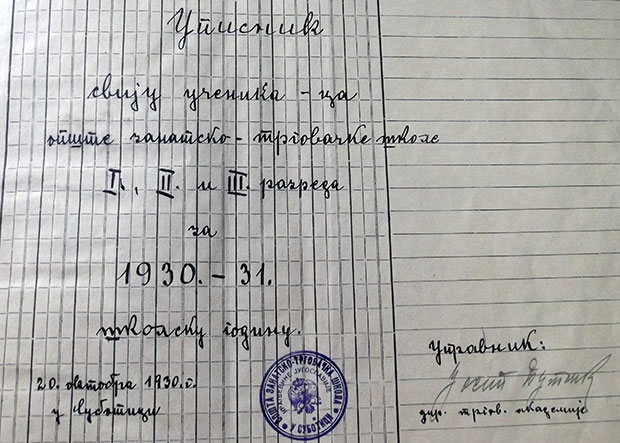 Уписник
свију ученика - ца
опште занатско - трговачке школе
I., II. и III. разреда
за
1930. - 31.
школску годину.
20. октобра 1930. г.
у Суботици
ОПШТА ЗАНАТСКО-ТРГОВАЧКА ШКОЛА
КРАЉЕВИНЕ ЈУГОСЛАВИЈЕ
У СУБОТИЦИ
Управник:
дир. тргов. академије